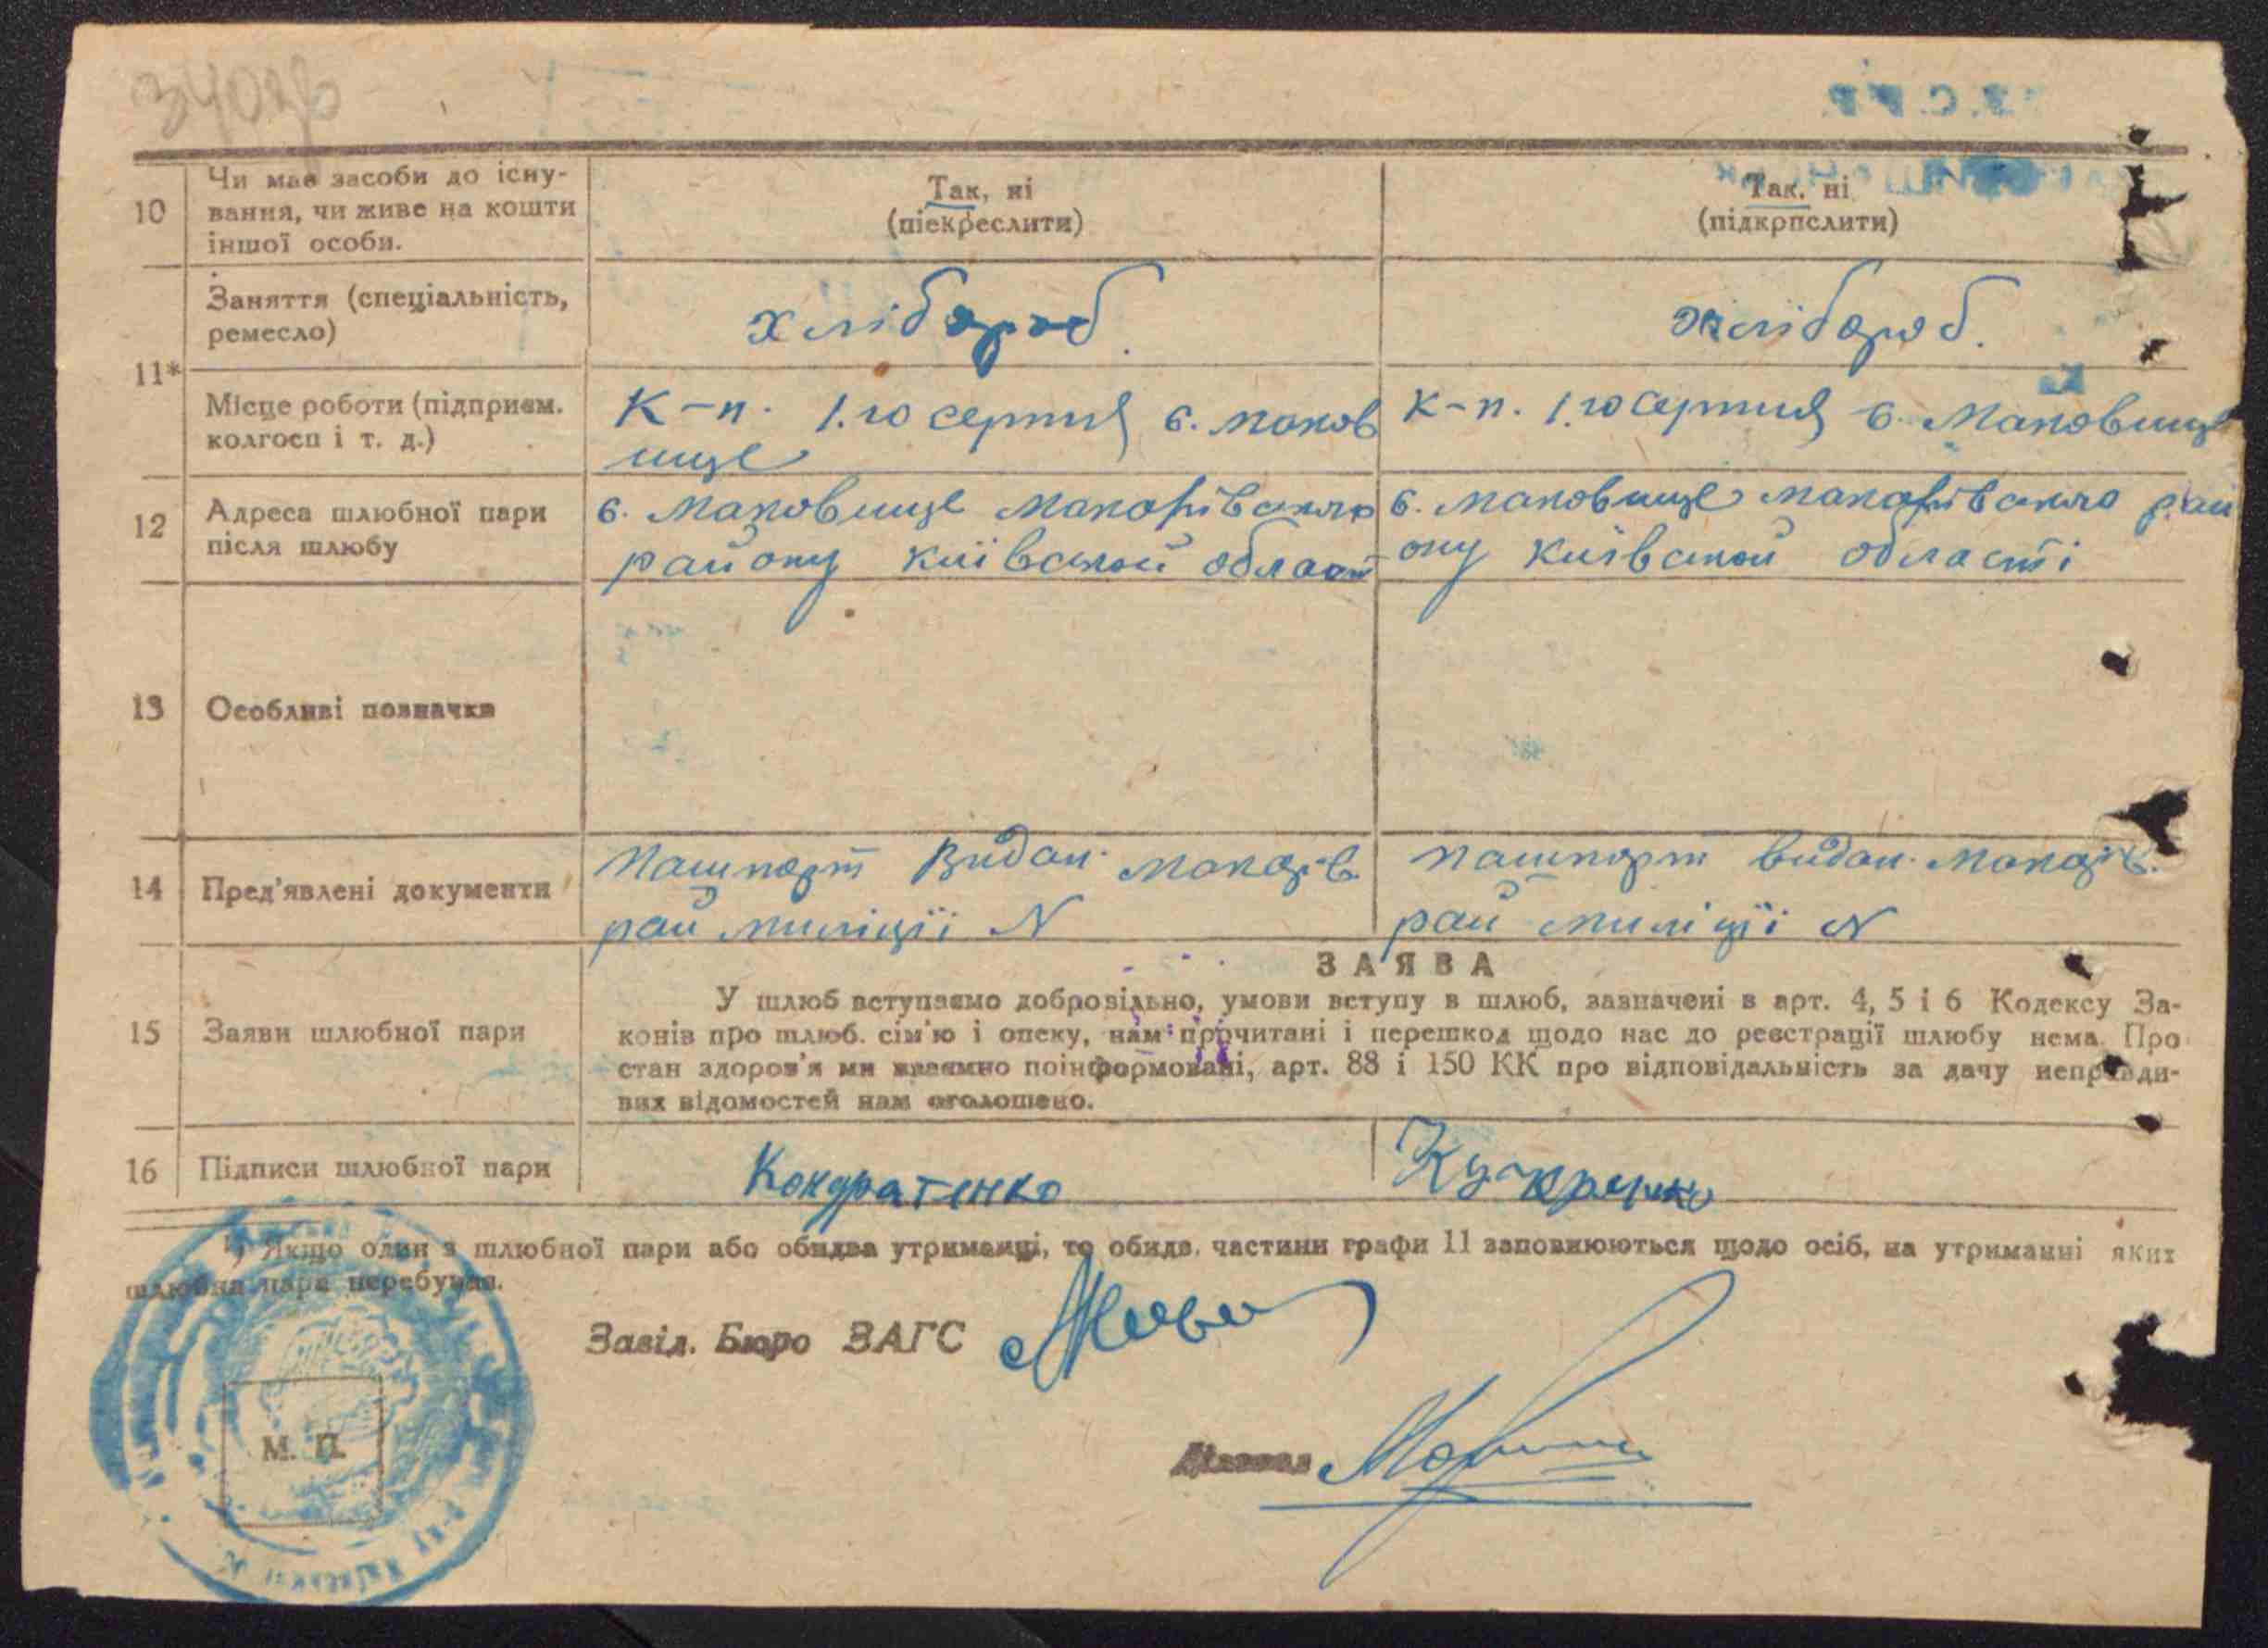 10
Чи має засоби до існу-
вання, чи живе на кошти
іншої особи.
Так, ні
(піекреслити)
Так, ні
(підкрпслити)
11*
Заняття (спеціальність,
ремесло)
хлібороб.
хлібороб.
Місце роботи (підприєм.
колгосп і т. д.)
К-п. 1.го серпня с. Маков
ище
К-п. 1.го серпня с. Маковище
12
Адреса шлюбної пари
після шлюбу
с. Маковище Макарівського
району Київської област
с. Маковище Макарівського рай
ону Київської області
13
Особливі позначки
14
Пред'явлені документи
Пашпорт Видан. Макарів.
рай міліції N
пашпорт видан. Макарів.
рай міліції N
15
Заяви шлюбної пари
ЗАЯВА
У шлюб вступаємо добровільно, умови вступу в шлюб, зазначені в арт. 4, 5 і 6 Кодексу За-
конів про шлюб. сім'ю і опеку, нам прочитані і перешкод щодо нас до реєстрації шлюбу нема. Про
стан здоров'я ми взаємно поінформовані, арт. 88 і 150 КК про відповідальність за дачу неправди-
вих відомостей нам оголошено.
16
Підписи шлюбної пари
Кондратенко
¹) Якщо один з шлюбної пари або обидва утриманці, то обидв. частини графи 11 заповнюються щодо осіб, на утриманні яких
шлюбна пара перебуває.
Завід. Бюро ЗАГС
М. П.